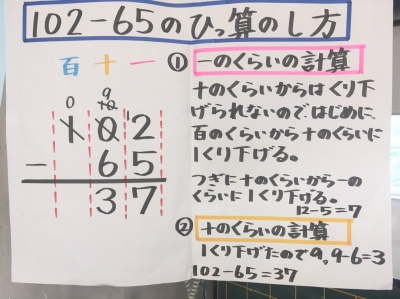 102-65のひっ算のし方
百 十 一
0 9
10
1 0 12
- 65
37
① 一のくらいの計算
十のくらいからはくり下
げられないので、はじめに、
百のくらいから十のくらいに
1くり下げる。
つぎに十のくらいから一の
くらいに1くり下げる。
12-5=7
② 十のくらいの計算
1くり下げたので9,9-6=3
102-65=37